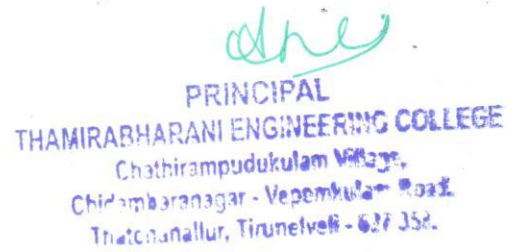 PRINCIPAL
THAMIRABHARANI ENGINEERING COLLEGE
Chathirampudukulam Village,
Chidambaranagar - Vepemkulam Road,
Thatchanallur, Tirunelveli - 627 358.